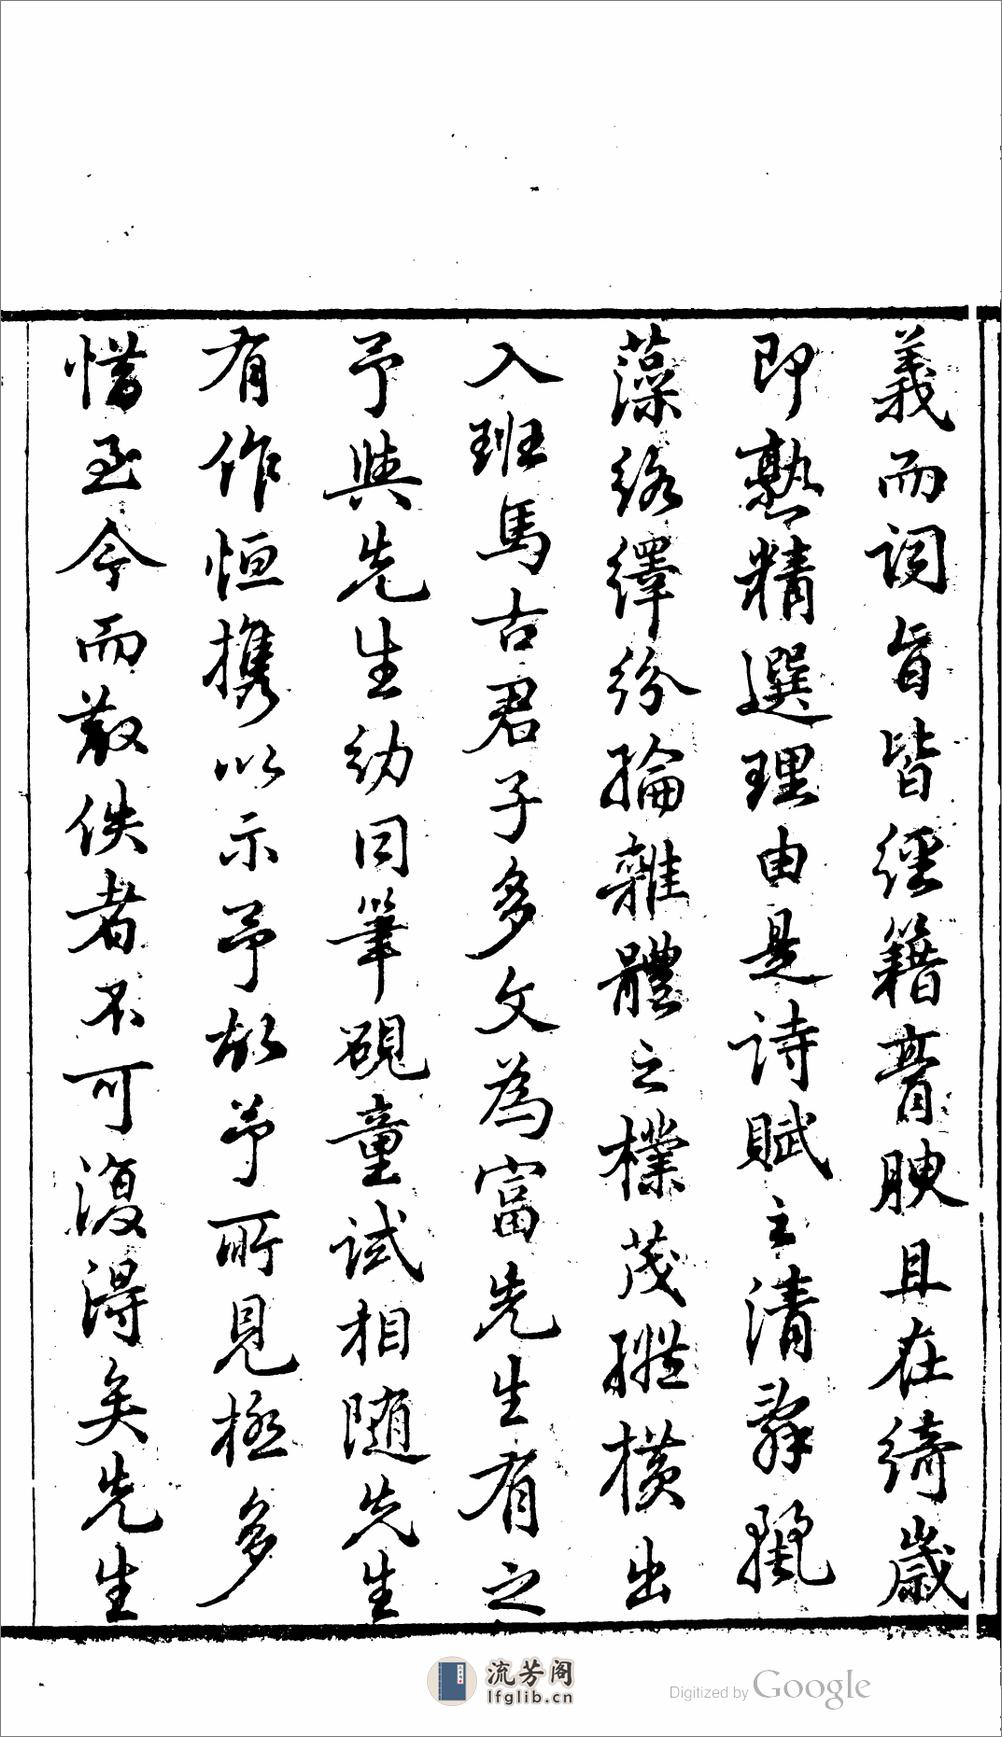 義而詞旨皆經籍膏腴且在綺歲
即熟精選理由是詩賦之清辭麗
藻絡繹紛綸雜體之樸茂縱橫出
入班馬古君子多文為富先生有之
予與先生幼同筆硯童試相隨先生
有作恒携以示予故予所見極多
惜至今而散佚者不可復得矣先生
流芳阁
lfglib.cn
Digitized by Google